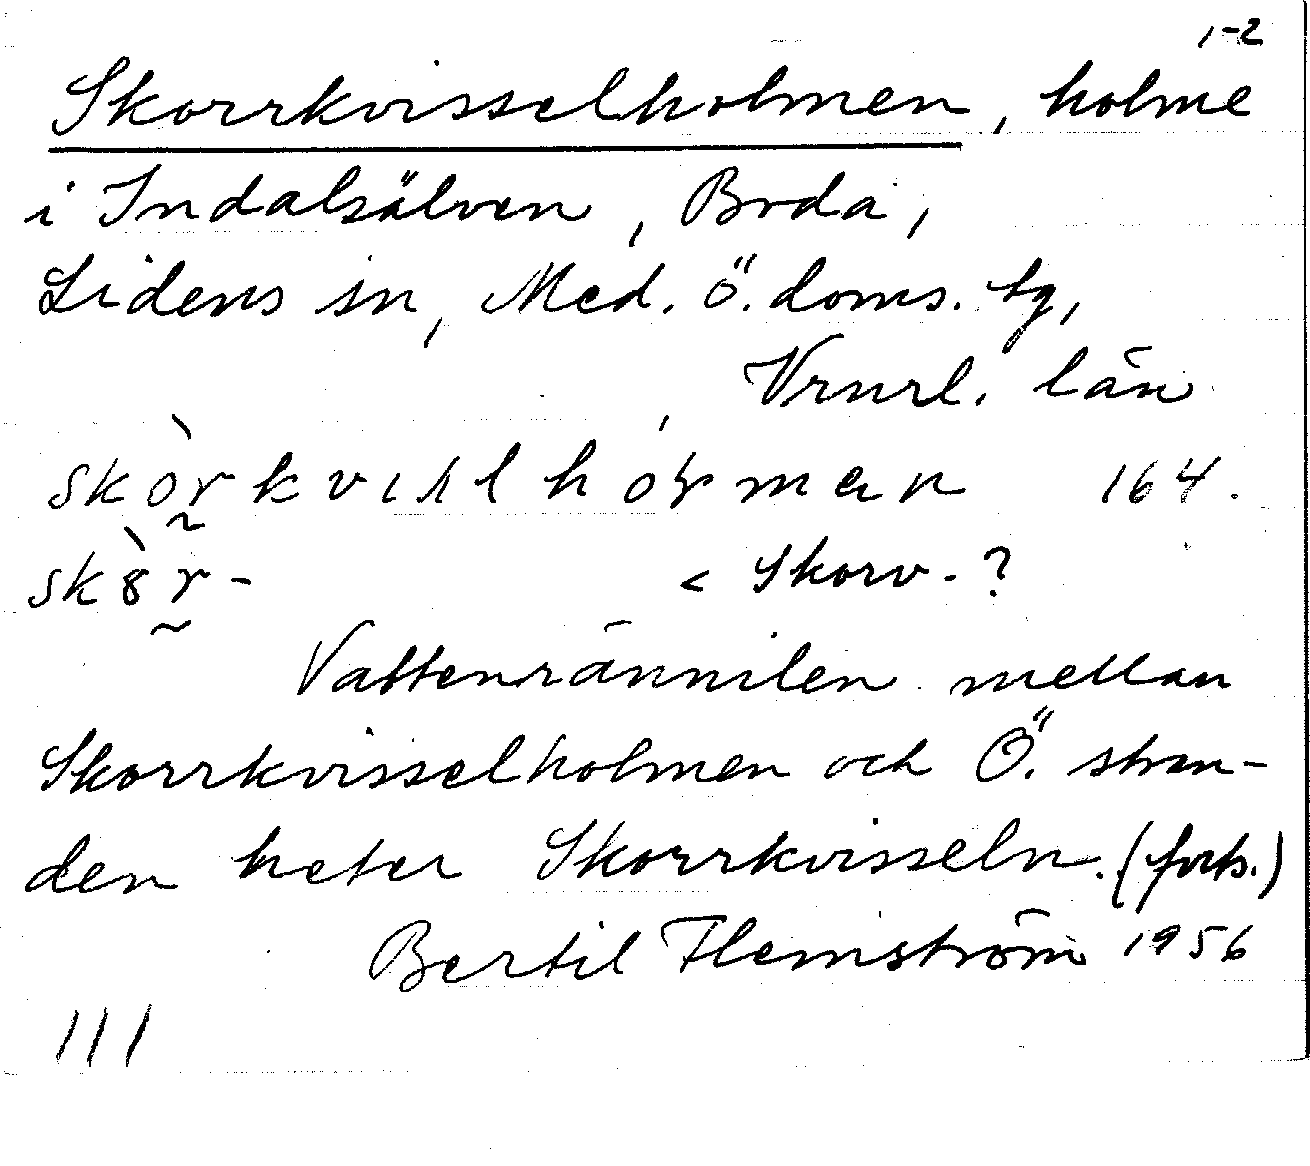 1-2
Skorrkvisselholmen, holme
i Indalsälven, Boda,
Lidens sn, Med. Ö. doms. tg,
Vrnrl. län
164.
< Skorv-?
Vattenrännilen mellan
Skorrkvisselholmen och Ö. stran-
den heter Skorrkvisseln. (forts.)
Bertil Flemström 1956
111